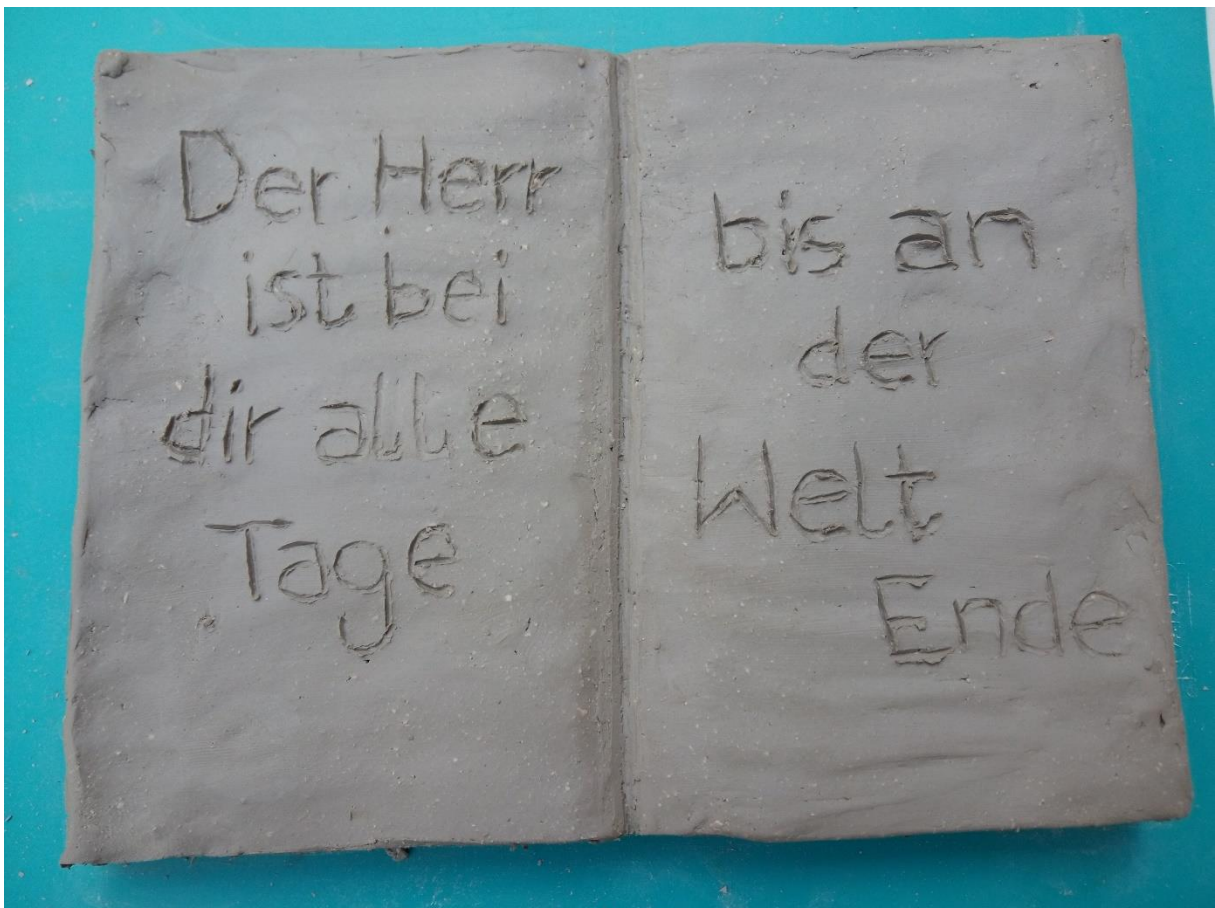 Der Herr
ist bei
dir alle
Tage
bis an
der
Welt
Ende